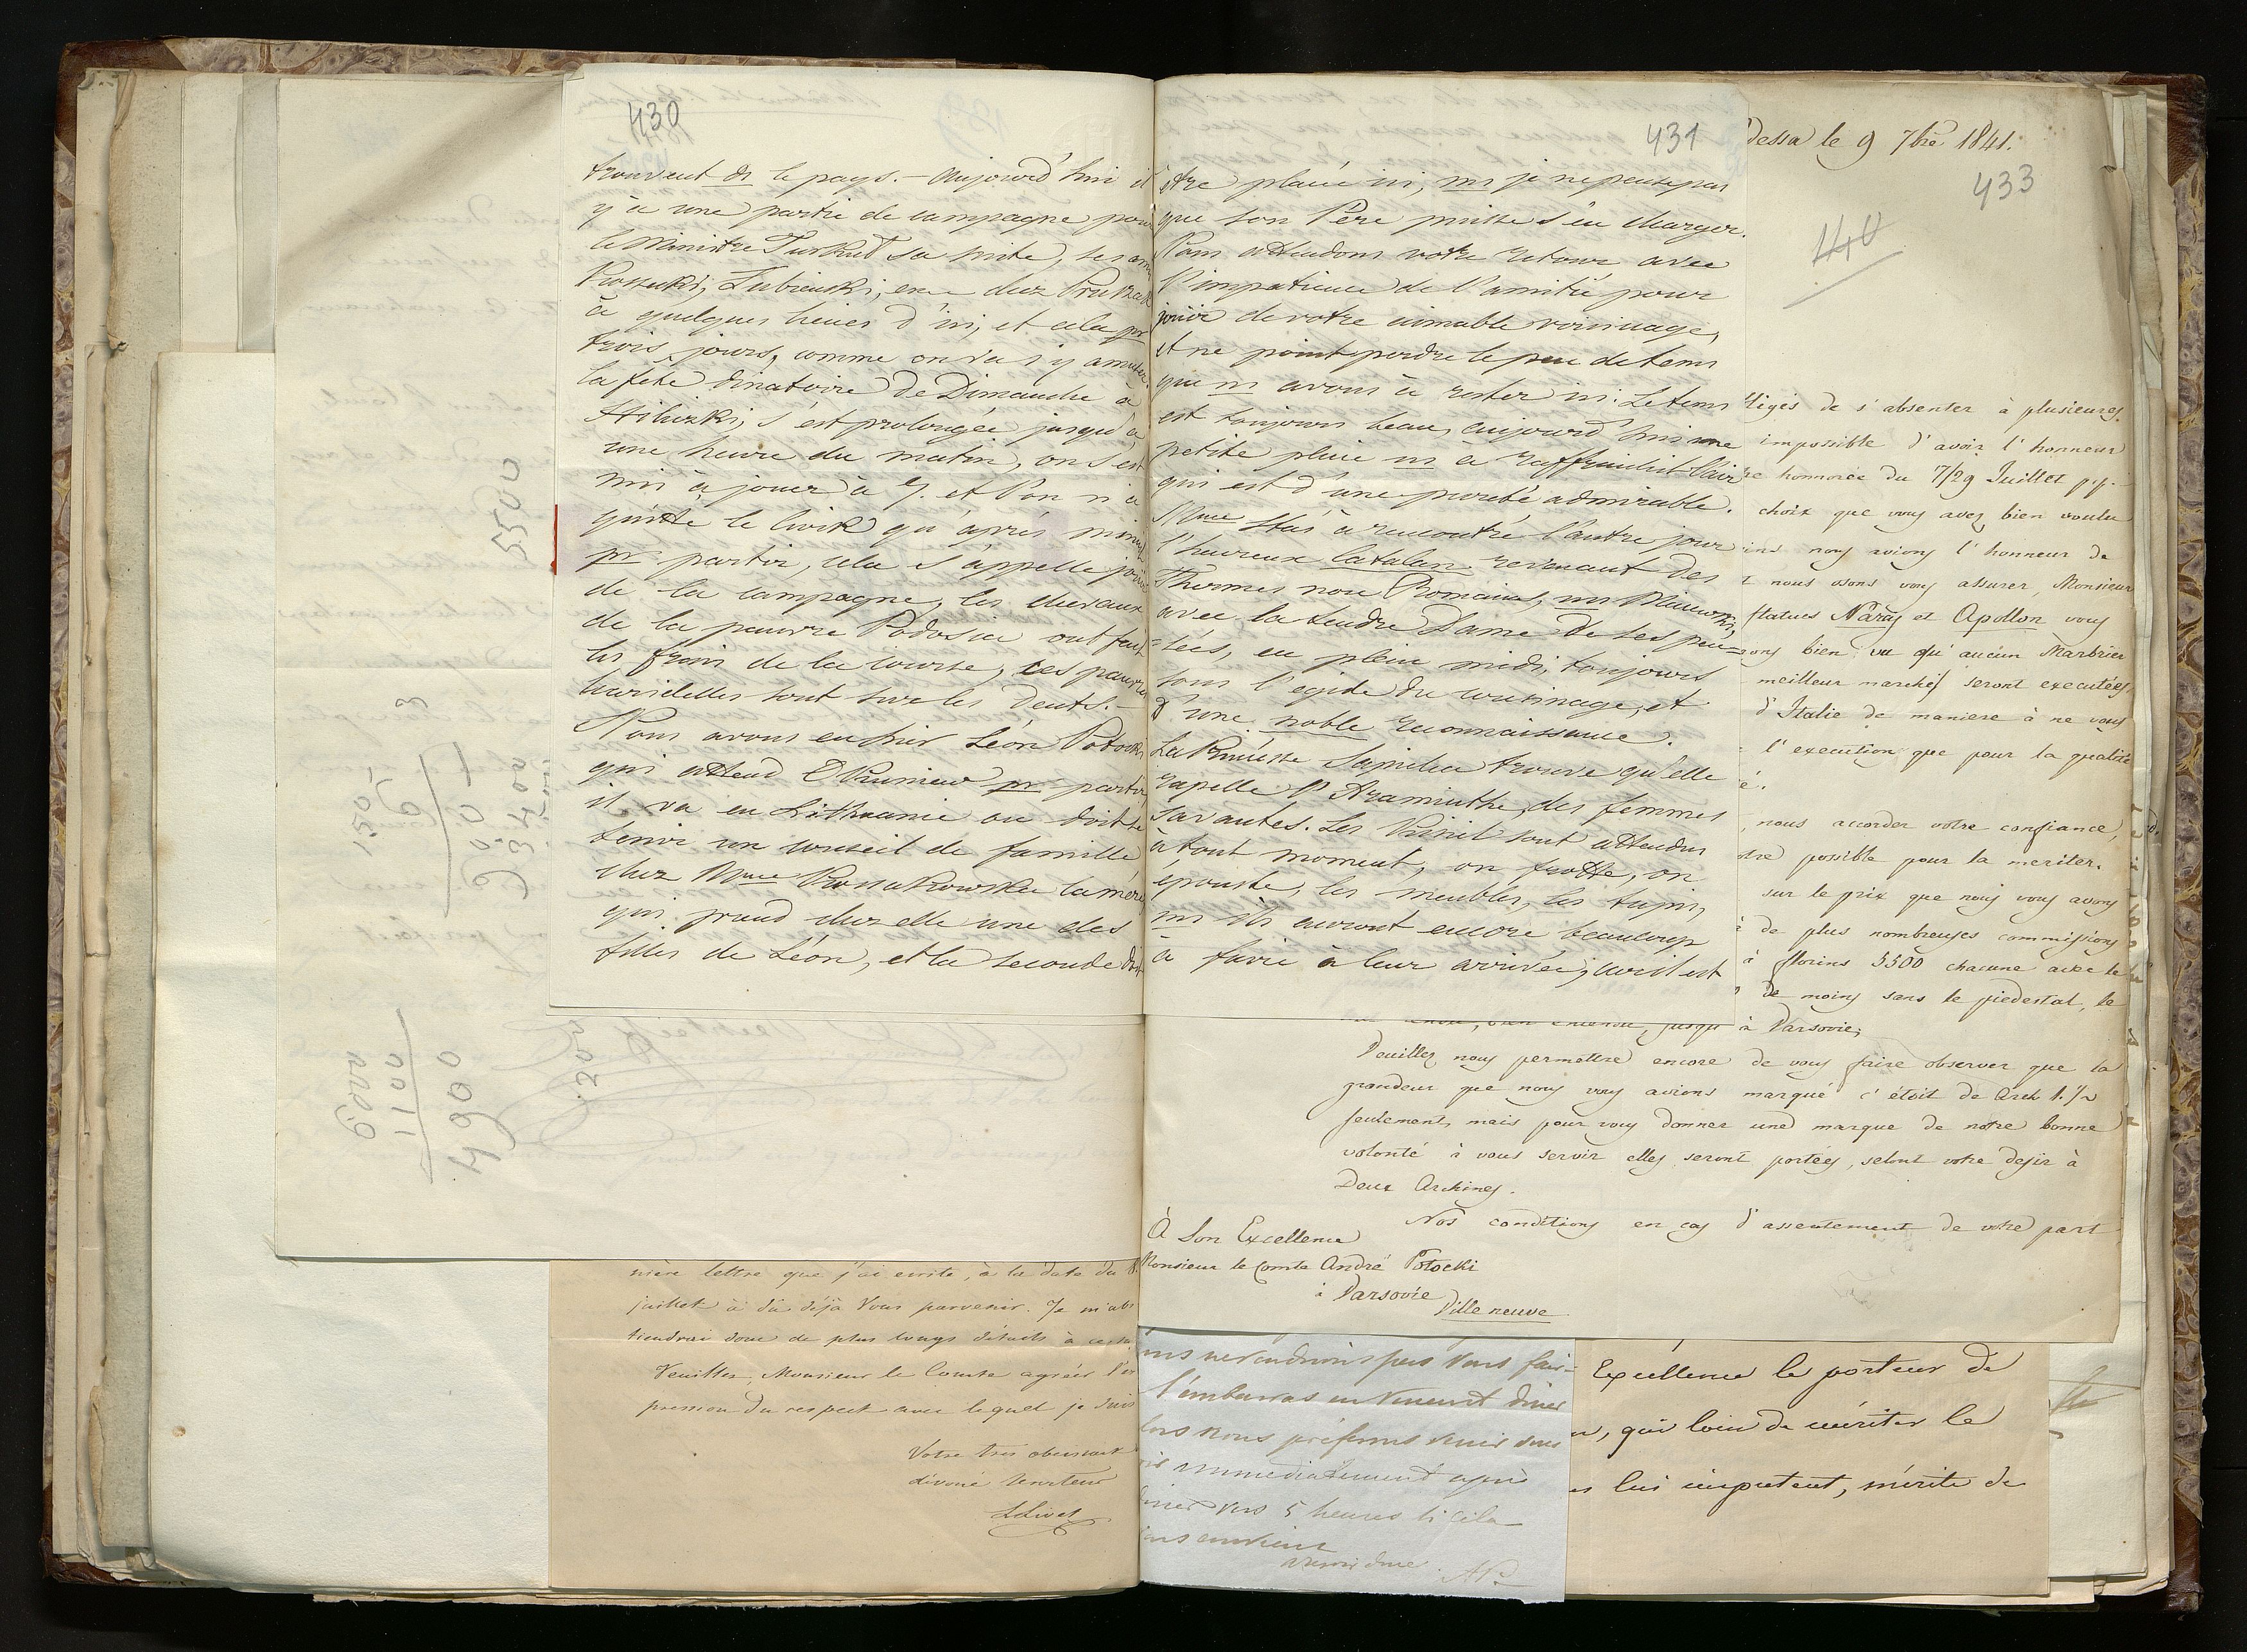 430
trouvent ds le pays. — aujourd'hui il
y a une partie de campagne pour
le Ministre Turkul sa suite, ses amis
Lubienski, chez Pruszak
à quelques heures d'ici, et cela pr
trois jours, comme on va s'y amuser.
la fête dinatoire de Dimanche à
s'est prolongée jusqu'à
une heure du matin, on s'est
mis à jouer à 7. et l'on n'a
quitté le wisk qu'après minuit
pr partir, cela s'appelle jouir
de la campagne, les chevaux
de la pauvre Podosia ont fait
les frais de la course, ces pauvres
haridelles sont sur les dents. —
Nous avons eu hier Léon Potocki
qui attend Okuniew pr partir,
il va en Lithuanie ou doit se
tenir un conseil de famille
chez Mme Kossakowska la mère
qui prend chez elle une des
filles de Léon, et la seconde doit
431
être placée ici, ms je ne pense pas
que son Père puisse s'en charger.
Nous attendons votre retour avec
l'impatience de l'amitié pour
jouir de votre aimable voisinage,
et ne point perdre le peu de tems
que ns avons à rester ici. Le tems
est toujours beau, aujourd'hui une
petite pluie ns a raffraichit l'air
qui est d'une pureté admirable.
Mme Stas a rencontré l'autre jour
l'heureux Catalan revenant des
Thermes non Romains, ms
avec la tendre Dame de ses pen=
=sées, en plein midi, toujours
sous l'égide du cousinage, et
d'une noble reconnaissance.
La Princesse Sapieha trouve qu'elle
rapelle l'Araminthe, des femmes
savantes. Les sont attendus
à tout moment, on frotte, on
epouste, les meubles, les tapis,
ms ils auront encore beaucoup
à faire à leur arrivée, car il est
dessa le 9 7bre 1841.
433
140
ligés de s'absenter à plusieures
impossible d'avoir l'honneur
re honorée du 7/29 Juillet pp.
choix que vous avez bien voulu
nous avions l'honneur de
nous osons vous assurer, Monsieur
statues Paris et Apollon vous
ons bien vu qu'aucun Marbrier
meilleur marché seront executées
d'Italie de maniere à ne vous
l'execution que pour la qualité
é.
nous accorder votre confiance,
otre possible pour la meriter.
sur le prix que nous vous avons
de plus nombreuses commissions
à florins 5500 chacune avec le
de moins sans le piedestal, le
bien entendu, jusqu'à Varsovie;
Veuillez nous permettre encore de vous faire observer que la
grandeur que nous vous avions marqué c'étoit de Arch 1.½
seulement, mais pour vous donner une marque de notre bonne
volonté à vous servir elles seront portées, selont votre desir à
Deux Archines.
Nos conditions en cas d'assentement de votre part
À Son Excellence
Monsieur le Comte André Potocki
à Varsovie
Ville neuve
5500
3
150
6
900
3400
6000
1100
4900
300
nière lettre que j'ai écrite, à la date du 8
juillet a dû déjà Vous parvenir. Je m'abs
tiendrai donc de plus longs détails à ce su
Veuillez, Monsieur le Comte agréer l'ex
pression du respect avec lequel je suis
Votre très obeissant
dévoué serviteur
ns ne voudrions pas vous fair=
l'embarras en venant diner
lors nous préférons venir vous
immediatement après
diner vers 5 heures si cela
vous convient
Excellence le porteur de
, qui loin de mériter le
lui imputent, mérite de